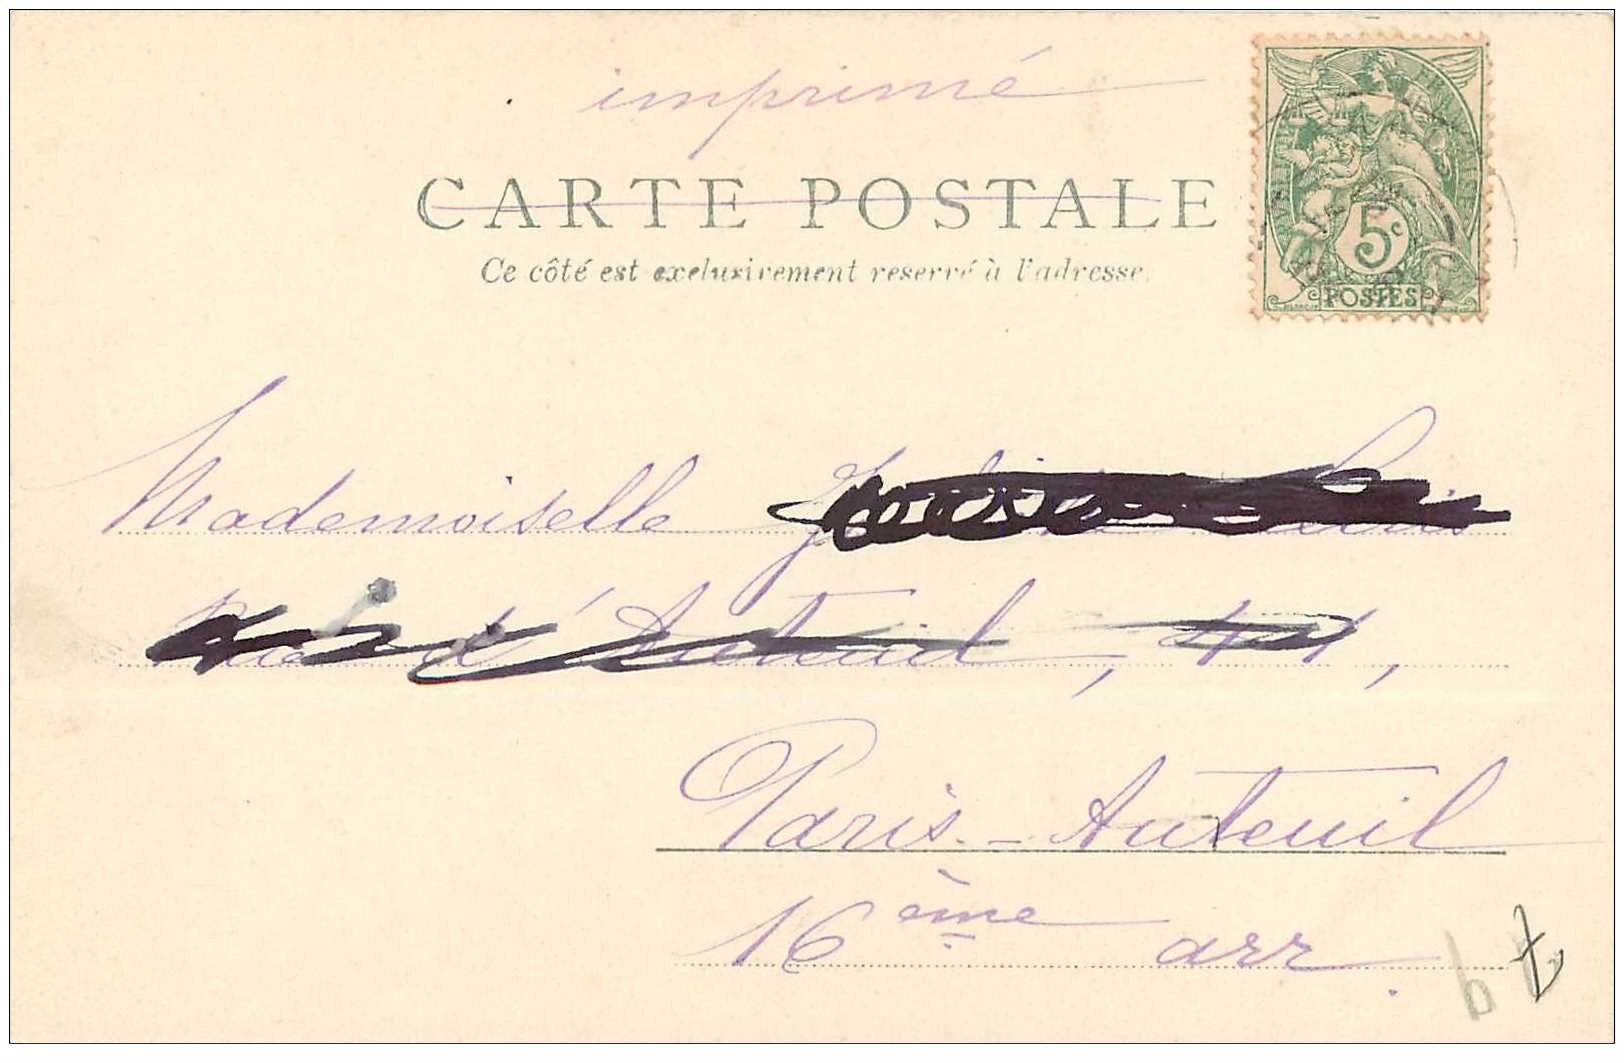 imprimé
CARTE POSTALE
Ce côté est exclusivement reservé à l'adresse.
5c
POSTES
Mademoiselle
d'Auteuil, 44,
Paris-Auteuil
16ème arr